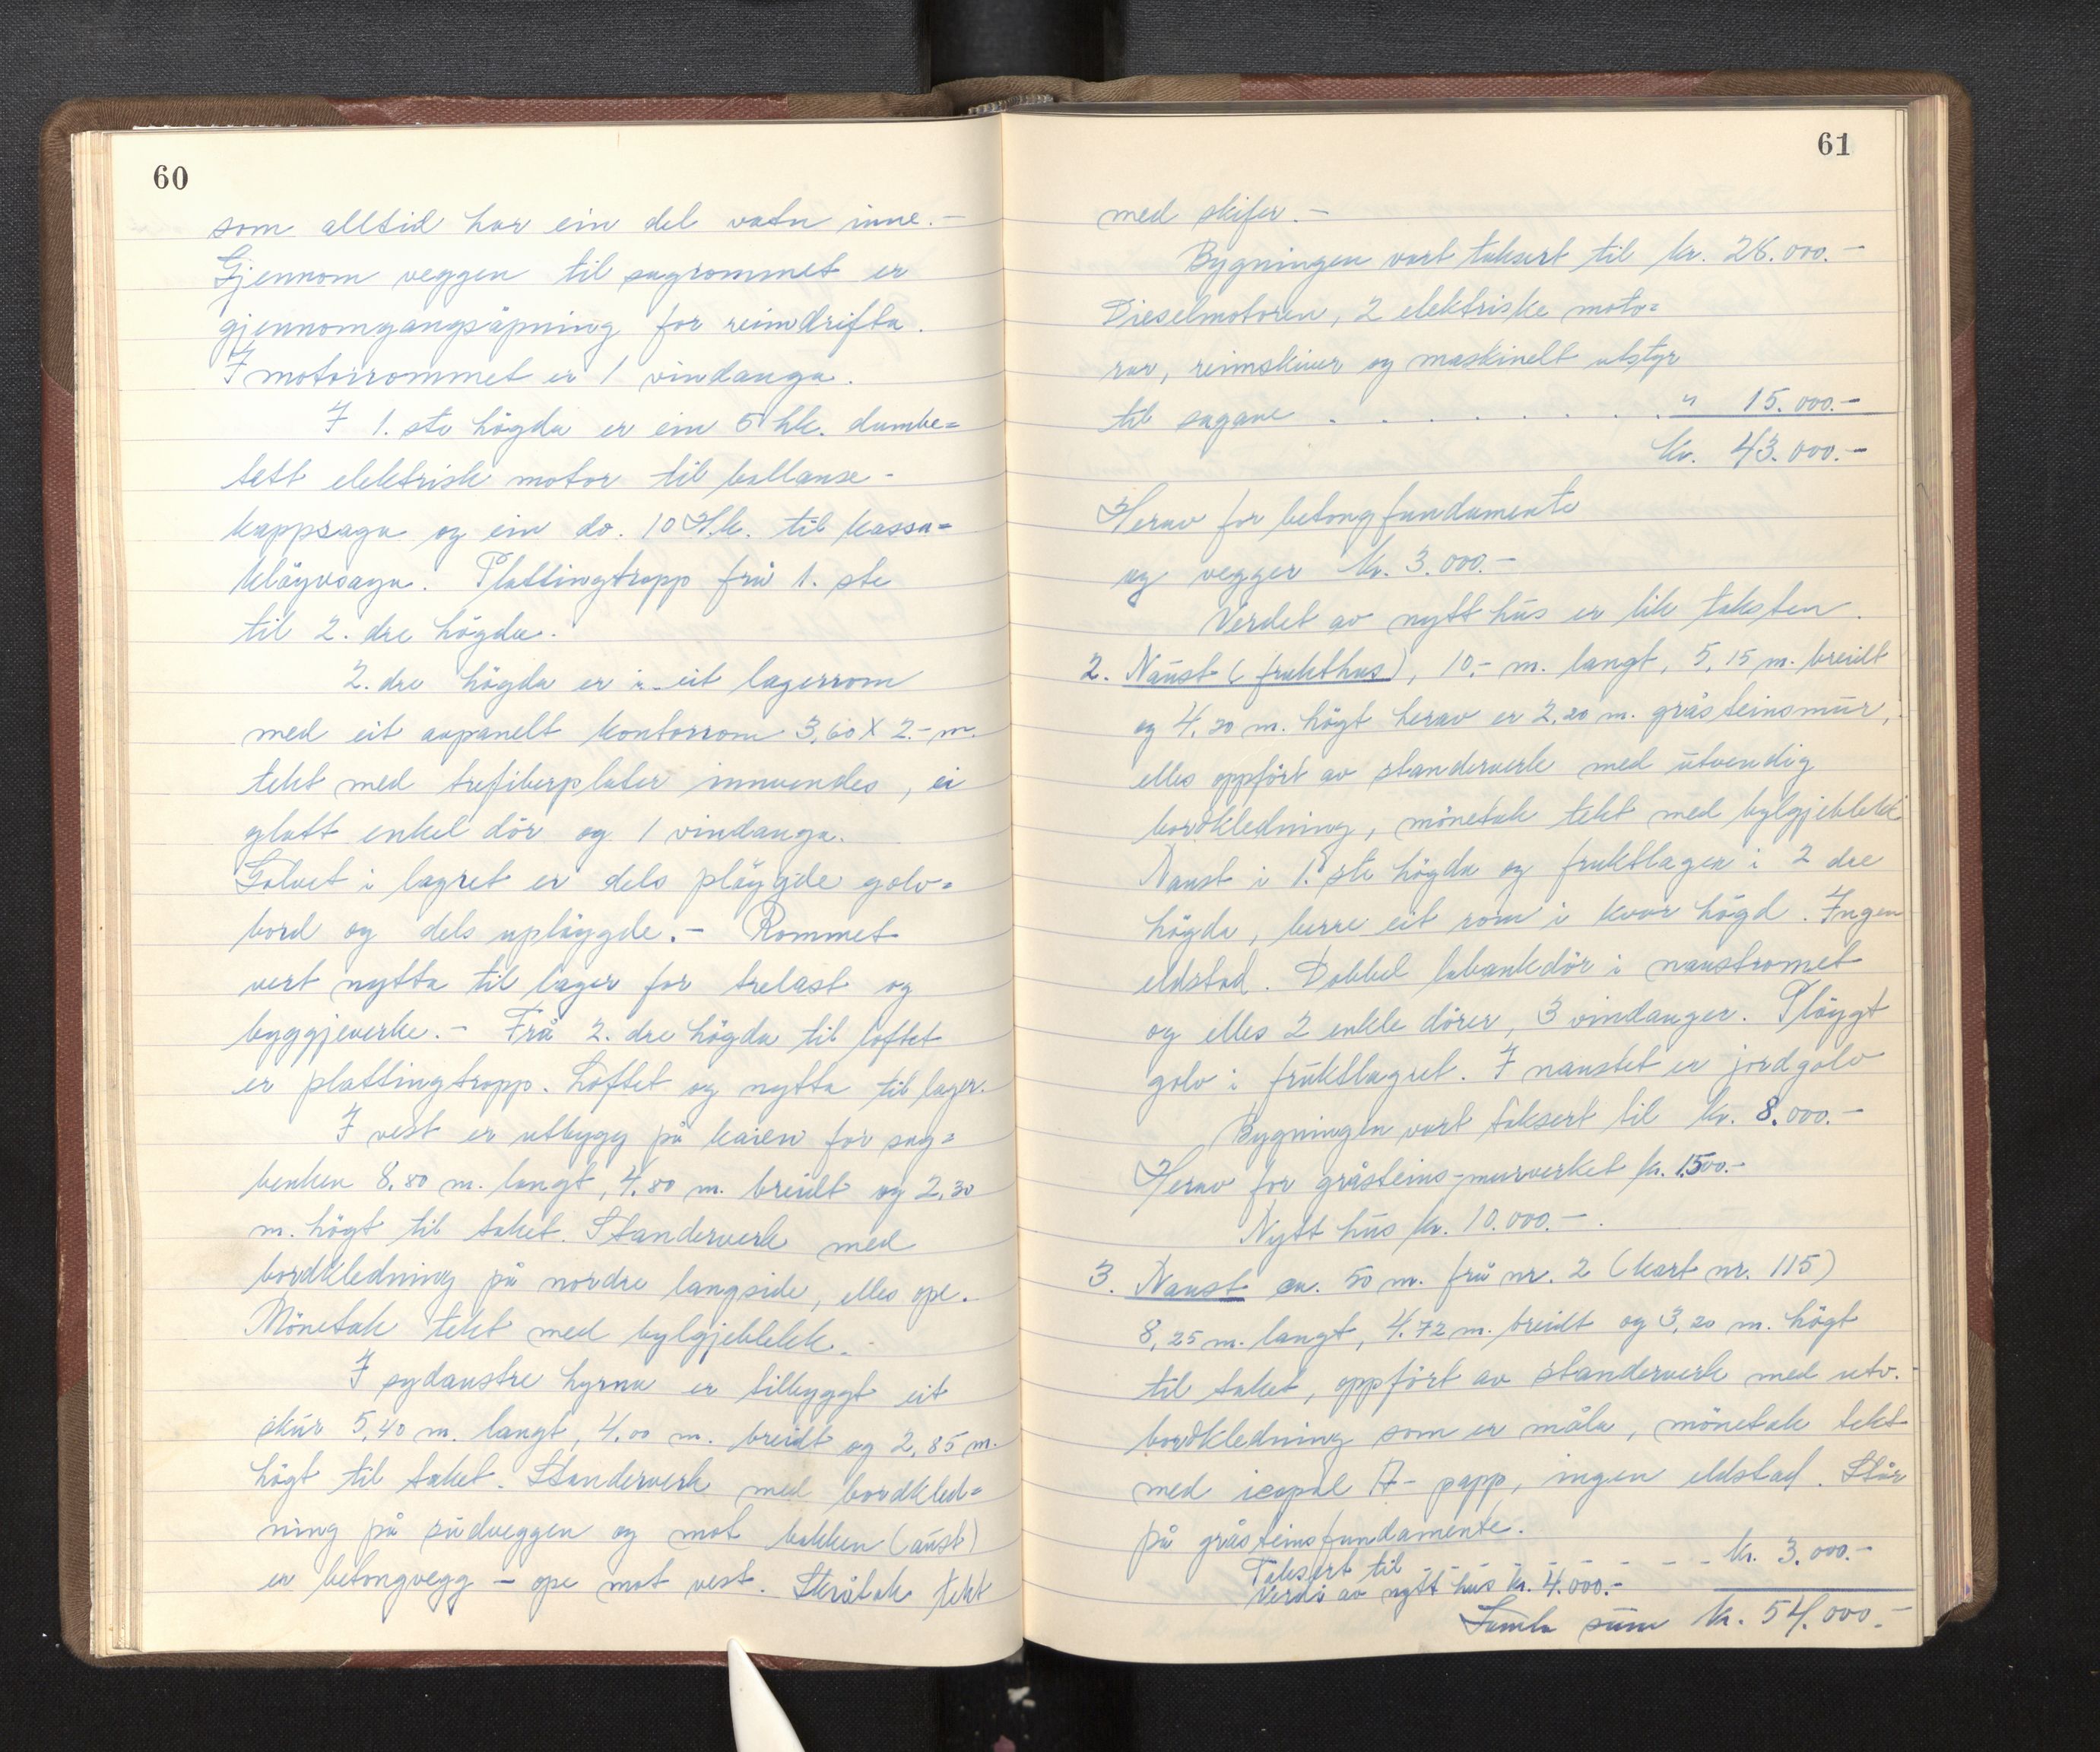 60
som alltid har ein del vatn inne.-
Gjennom veggen til sagrommet er
gjennomgangsåpning for reimdrifta.
I motorrommet er 1 vindauga.
I 1. ste högda er ein 5 hk. dumbe=
tett elektrisk motor til ballanse-
kappsaga og ein do. 10 H.k. til kassa=
klöyvsaga. Plattingtropp frå 1. ste
til 2. dre högda.
2. dre högda er i eit lagerrom
med eit avpanelt kontorrom 3,60 X 2.- m.
tekt med trefiberplater innvendes, ei
glatt enkel dör og 1 vindauga.
Golvet i lagret er dels plöygde golv=
bord og dels uplöygde.- Rommet
vert nytta til lager for trelast og
byggjeverke.- Frå 2. dre högda til loftet
er plattingtropp. Loftet og nytta til lager.
I vest er utbygg på kaien for sag=
benken 8,80 m. langt, 4,80 m. breidt og 2,30
m. högt til taket. Standerverk med
bordkledning på nordre langside, elles ope.
Mönetak tekt med bylgjeblekk.
I sydaustre hyrna er tilbyggt eit
skur 5,40 m. langt, 4,00 m. breidt og 2,85 m.
högt til taket. Standerverk med bordkled=
ning på sudveggen og mot bakken (aust)
er betongvegg - ope mot vest. Skråtak tekt
61
med skifer.-
Bygningen vart taksert til kr. 28.000.-
Dieselmotoren, 2 elektriske moto=
rar, reimskiver og maskinelt utstyr
til sagane . . . . . . . . " 15.000.-
kr. 43.000.-
Herav for betongfundamente
og vegger kr. 3.000.-
Verdet av nytt hus er lik taksten.
2. Naust (frukthus), 10.- m. langt, 5,15 m. breidt
og 4,20 m. högt herav er 2,20 m. gråsteinsmur,
elles oppfört av standerverk med utvendig
bordkledning, mönetak tekt med bylgjeblekk
Naust i 1. ste högda og fruktlager i 2 dre
högda, berre eit rom i kvar högd. Ingen
eldstad. Dobbel labankdör i naustromet
og elles 2 enkle dörer, 3 vindauger. Plöygt
golv i fruktlagret. I naustet er jordgolv
Bygningen vart taksert til kr. 8.000.-
Herav for gråsteins-murverket kr. 1500.-
Nytt hus kr. 10.000.-.
3. Naust ca. 50 m. frå nr. 2 (kart nr. 115)
8,25 m. langt, 4.72 m. breidt og 3,20 m. högt
til taket, oppfört av standerverk med utv.
bordkledning som er måla, mönetak tekt
med icopal A- papp, ingen eldstad. Står
på gråsteinsfundamente.
Taksert til - - - - - - - - kr. 3.000.-
Verdi av nytt hus kr. 4.000.-
Samla sum kr. 54.000.-